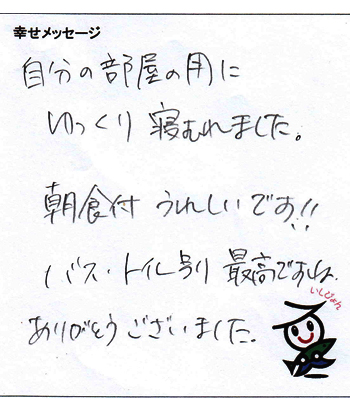 幸せメッセージ
自分の部屋の用に
ゆっくり 寝むれました。
朝食付 うれしいです!!
バス・トイレ別 最高ですね。
いしじょん
ありがとうございました。